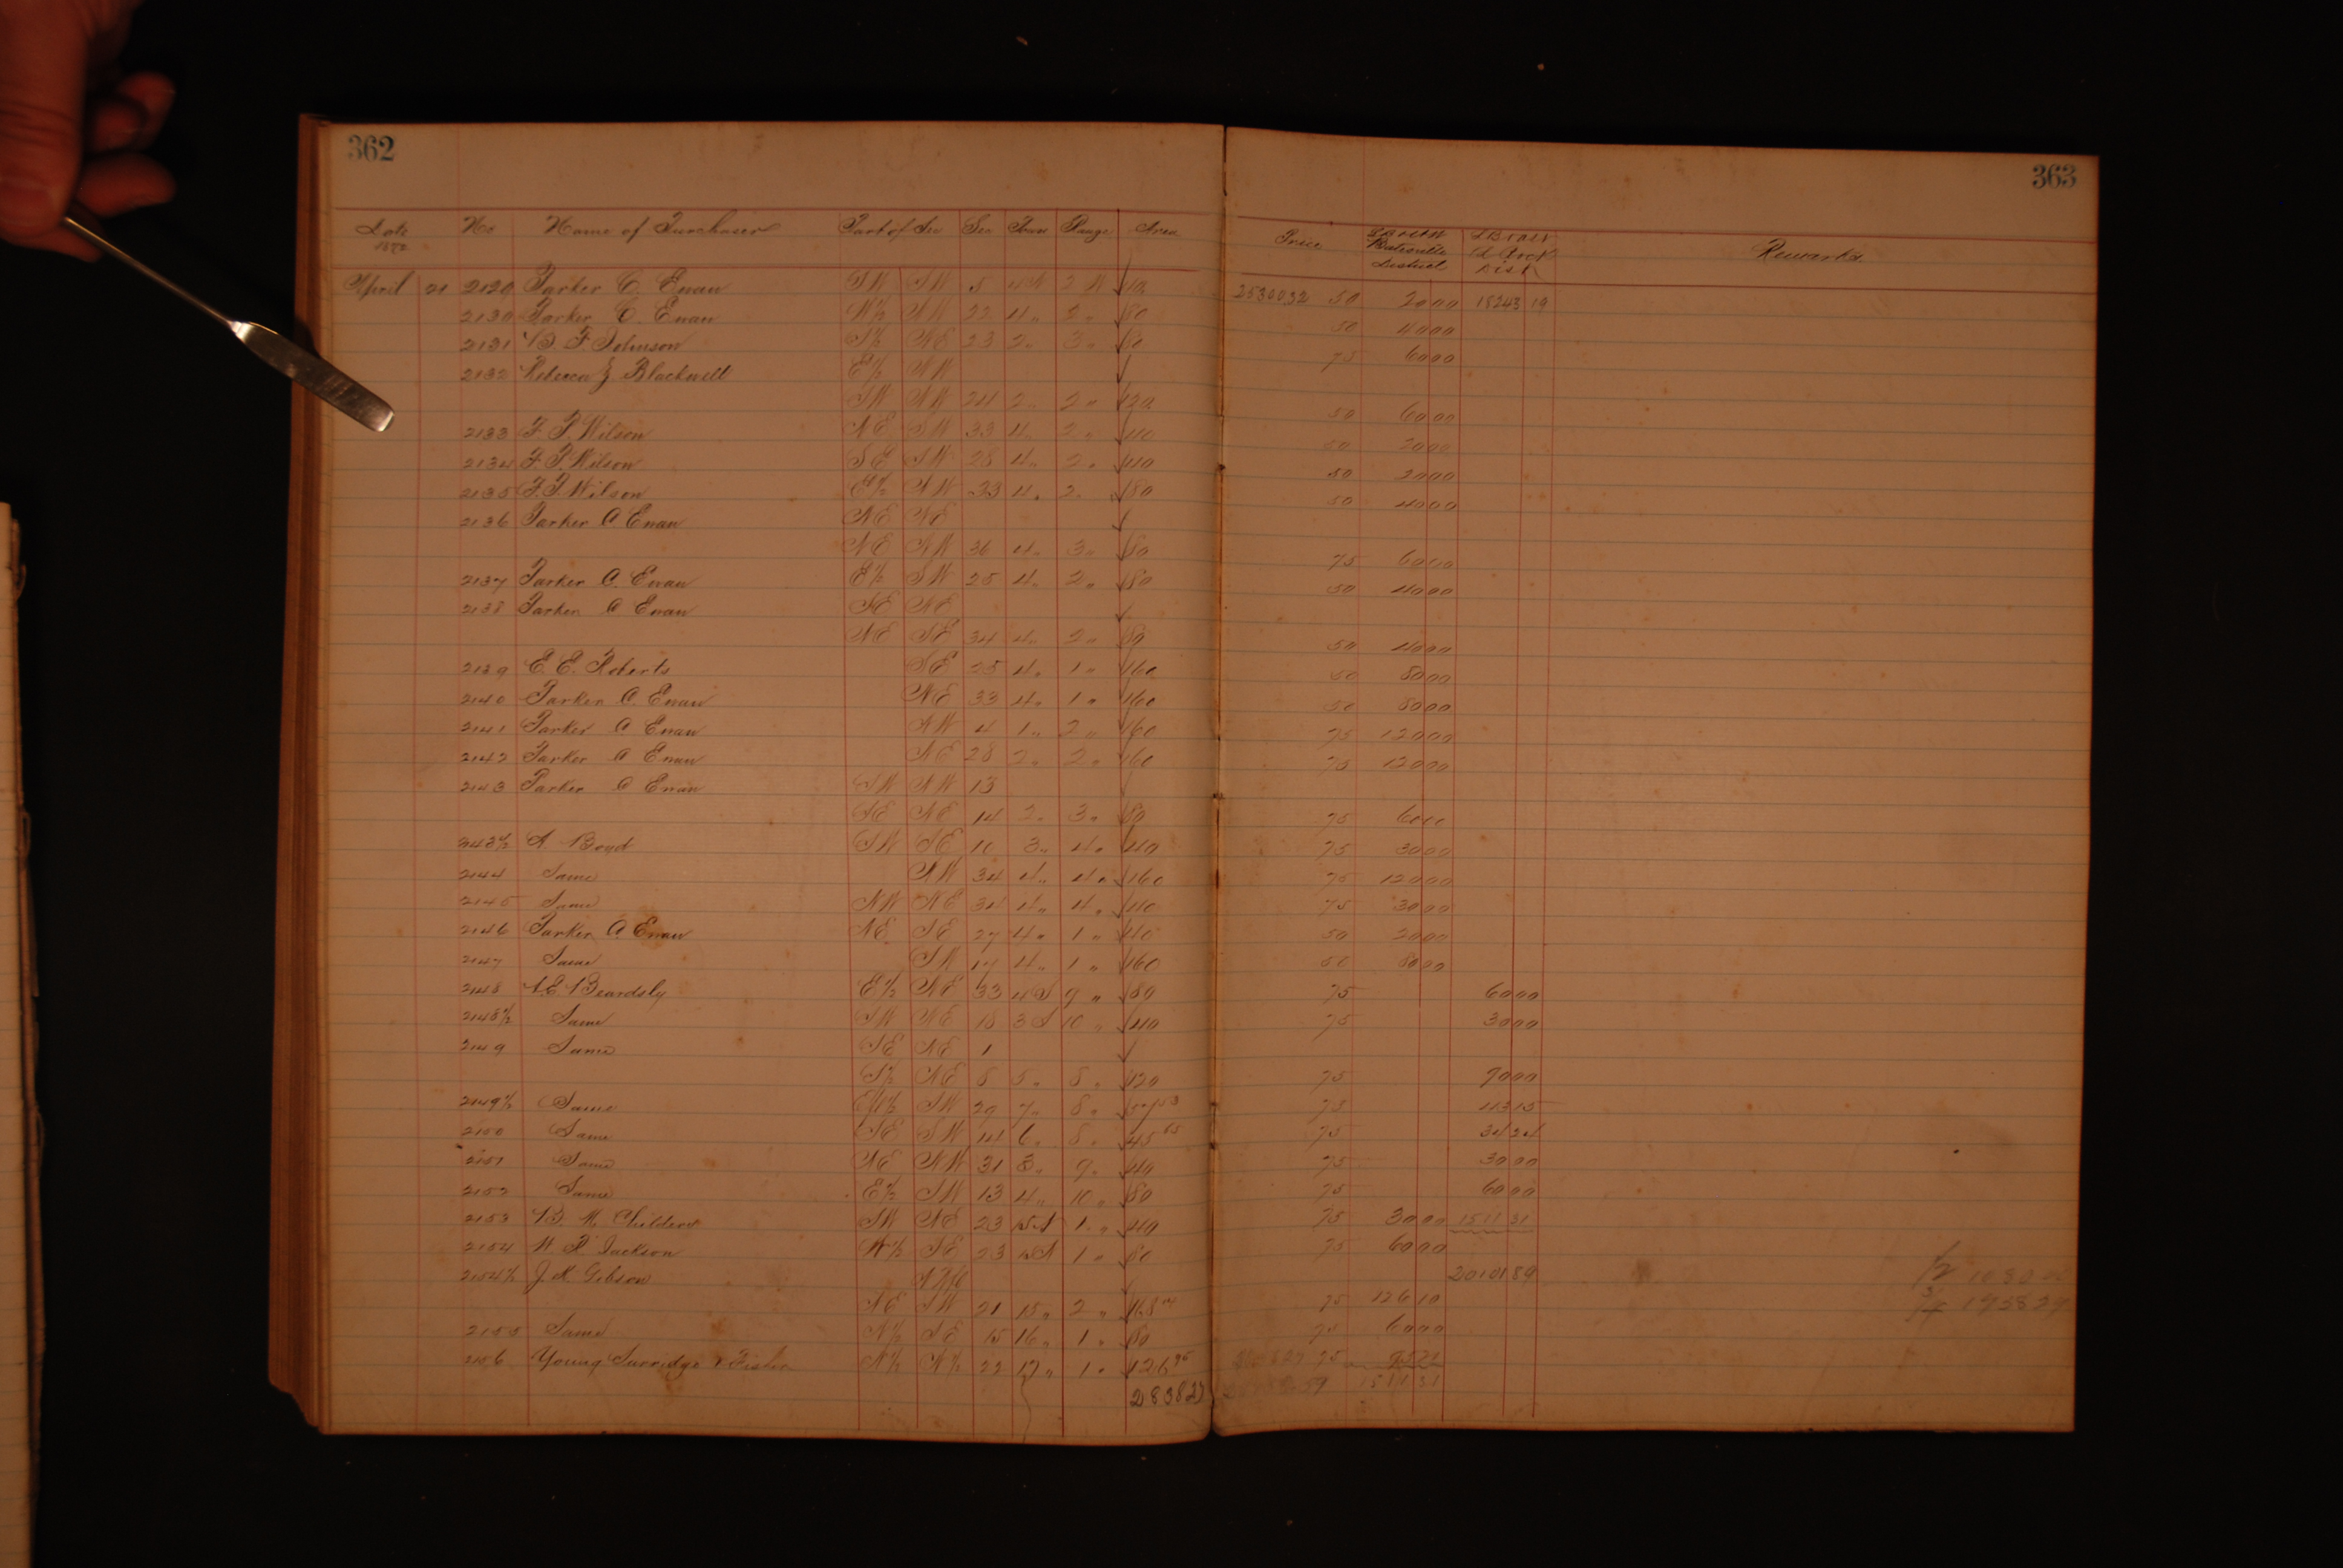 362
363
Date 1872 No Name of Purchaser Part of Sec Sec Town Range Area Price Batesville District Dist Remarks
April 21 2129 Parker C. Ewan SW SW 5 4N 2 W 40 2530032 50 2000 18243 19
2130 Parker C. Ewan W½ 22 4 " 2 " 80 50 4000
2131 B. F. Johnson S½ NE 23 2 " 3 " 80 75 6000
2132 Rebecca J. Blackwell E½ NW
SW NW 24 2 " 2 " 120 50 6000
2133 F. P. Wilson NE SW 33 4 " 2 " 40 50 2000
2134 F. P. Wilson SE SW 28 4 " 2 " 40 50 2000
2135 F. P. Wilson E½ NW 33 4 " 2 " 80 50 4000
2136 Parker C Ewan NE NE
NE NW 36 4 " 3 " 80 75 6000
2137 Parker C. Ewan E½ SW 25 4 " 2 " 80 50 4000
2138 Parker C Ewan SE NE
NE SE 34 4 " 2 " 80 50 4000
2139 E. E. Roberts SE 25 4 " 1 " 160 50 8000
2140 Parker C. Ewan NE 33 4 " 1 " 160 50 8000
2141 Parker C Ewan NW 4 1 " 2 " 160 75 12000
2142 Parker C Ewan NE 28 2 " 2 " 160 75 12000
2143 Parker C Ewan SW NW 13
SE NE 14 2 " 3 " 80 75 6000
2143½ A. Boyd SW SE 10 3 " 4 " 40 75 3000
2144 Same NW 34 4 " 4 " 160 75 12000
2145 Same NW NE 34 4 " 4 " 40 75 3000
2146 Parker C. Ewan NE SE 27 4 " 1 " 40 50 2000
2147 Same SW 17 4 " 1 " 160 50 8000
2148 Beardsly E½ NE 33 4S 9 " 80 75 6000
2148½ Same SW NE 18 3S 10 " 40 75 3000
2149 Same SE NE 1
S½ NE 8 5 " 8 " 120 75 9000
2149½ Same SW 29 7 " 8 " 75 11315
2150 Same SE SW 14 6 " 8 " 45 65 75 3424
2151 Same NE NW 31 3 " 9 " 40 75 3000
2152 Same E½ SW 13 4 " 10 " 80 75 6000
2153 B. M. Childers SW NE 23 15N 1 " 40 75 3000 1511 31
2154 W. P. Jackson W½ SE 23 15N 1 " 80 75 6000
2154½ J. N. Gibson 20101 89
NE SW 21 15 " 2 " 168 75 12610
2155 Same N½ SE 15 16 " 1 " 80 75 6000
2156 Young Surridge & Fisher N½ N½ 22 17 " 1 " 126 95 75 9521
283827 1511 31